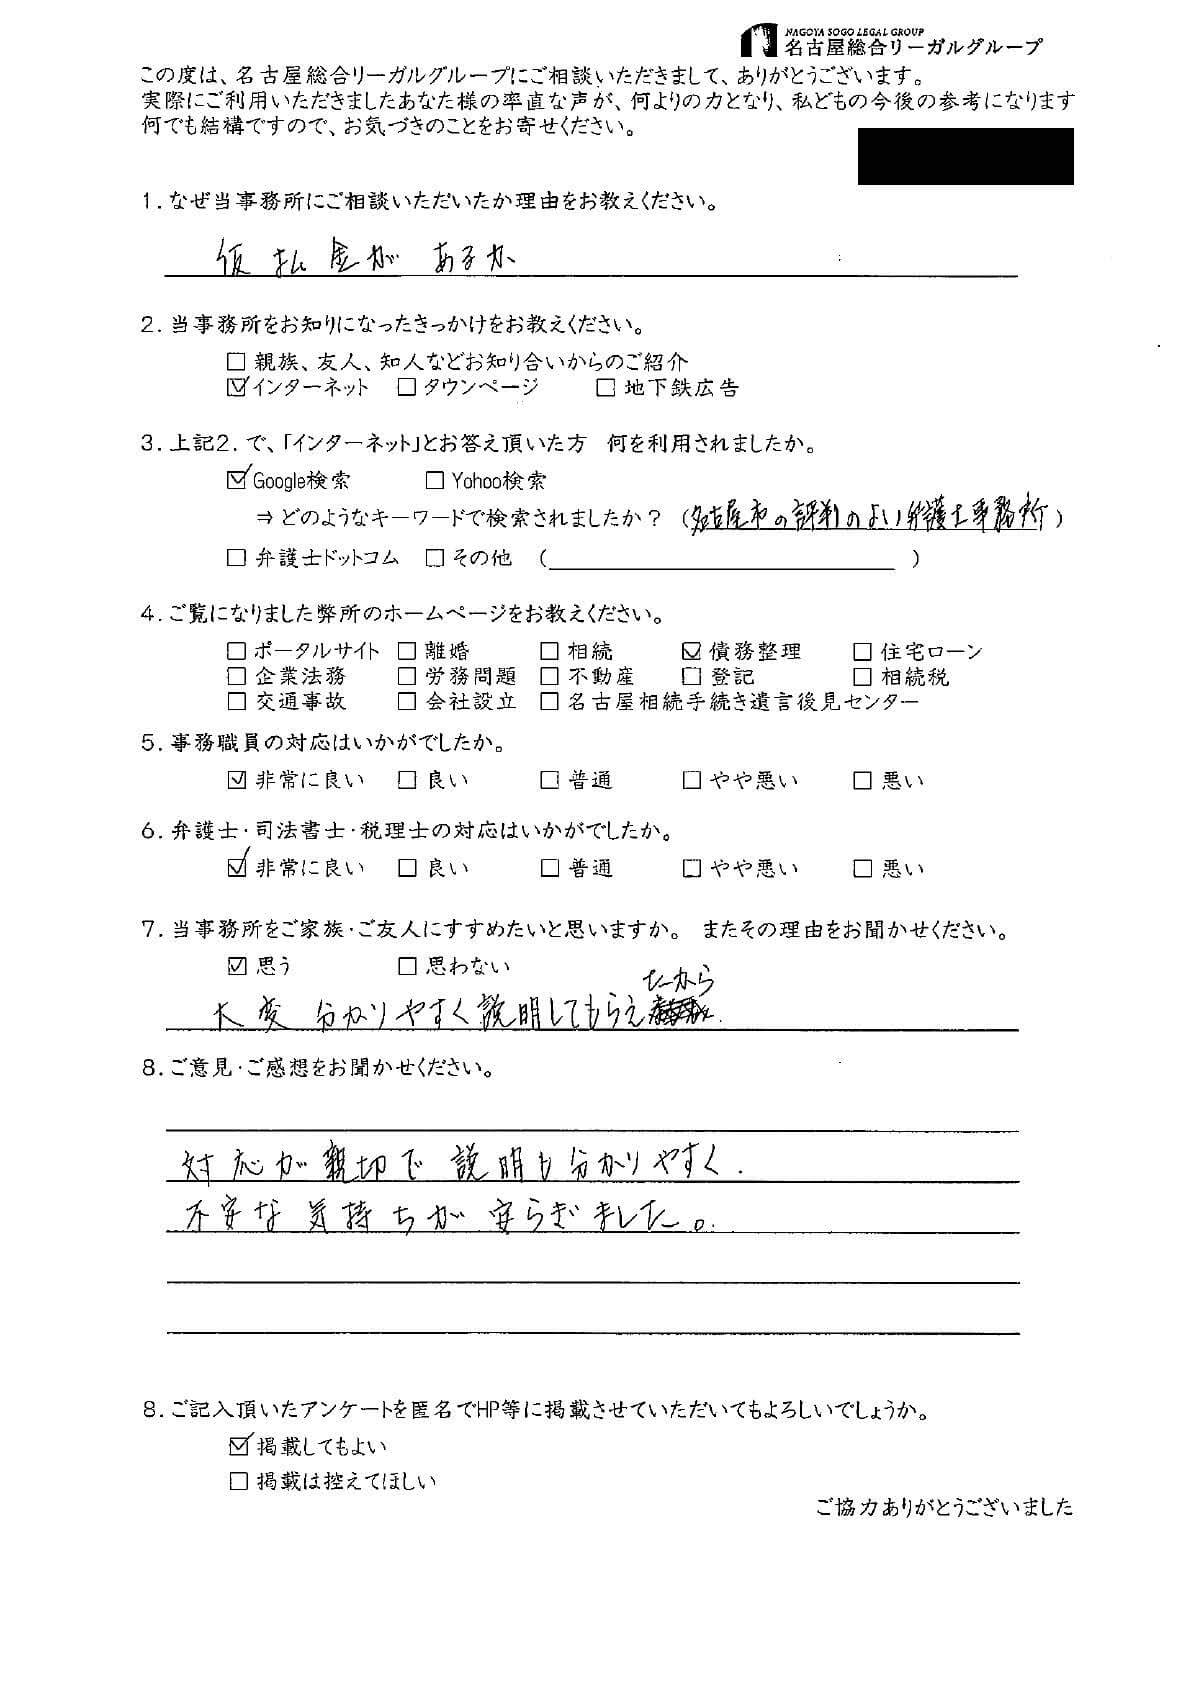 NAGOYA SOGO LEGAL GROUP
名古屋総合リーガルグループ
この度は、名古屋総合リーガルグループにご相談いただきまして、ありがとうございます。
実際にご利用いただきましたあなた様の率直な声が、何よりの力となり、私どもの今後の参考になります
何でも結構ですので、お気づきのことをお寄せください。
1.なぜ当事務所にご相談いただいたか理由をお教えください。
仮払金があるか
2.当事務所をお知りになったきっかけをお教えください。
□ 親族、友人、知人などお知り合いからのご紹介
☑インターネット □ タウンページ □ 地下鉄広告
3.上記2.で、「インターネット」とお答え頂いた方 何を利用されましたか。
☑Google検索 □ Yohoo検索
⇒どのようなキーワードで検索されましたか？ (名古屋市の評判のよい弁護士事務所)
□ 弁護士ドットコム □ その他 ( )
4.ご覧になりました弊所のホームページをお教えください。
□ ポータルサイト □ 離婚 □ 相続 ☑ 債務整理 □ 住宅ローン
□ 企業法務 □ 労務問題 □ 不動産 □ 登記 □ 相続税
□ 交通事故 □ 会社設立 □ 名古屋相続手続き遺言後見センター
5.事務職員の対応はいかがでしたか。
☑ 非常に良い □ 良い □ 普通 □ やや悪い □ 悪い
6.弁護士・司法書士・税理士の対応はいかがでしたか。
☑ 非常に良い □ 良い □ 普通 □ やや悪い □ 悪い
7.当事務所をご家族・ご友人にすすめたいと思いますか。 またその理由をお聞かせください。
☑ 思う □ 思わない
大変分かりやすく説明してもらえたから
8.ご意見・ご感想をお聞かせください。
対応が親切で説明も分かりやすく.
不安な気持ちが安らぎました。
8.ご記入頂いたアンケートを匿名でHP等に掲載させていただいてもよろしいでしょうか。
☑掲載してもよい
□ 掲載は控えてほしい
ご協力ありがとうございました